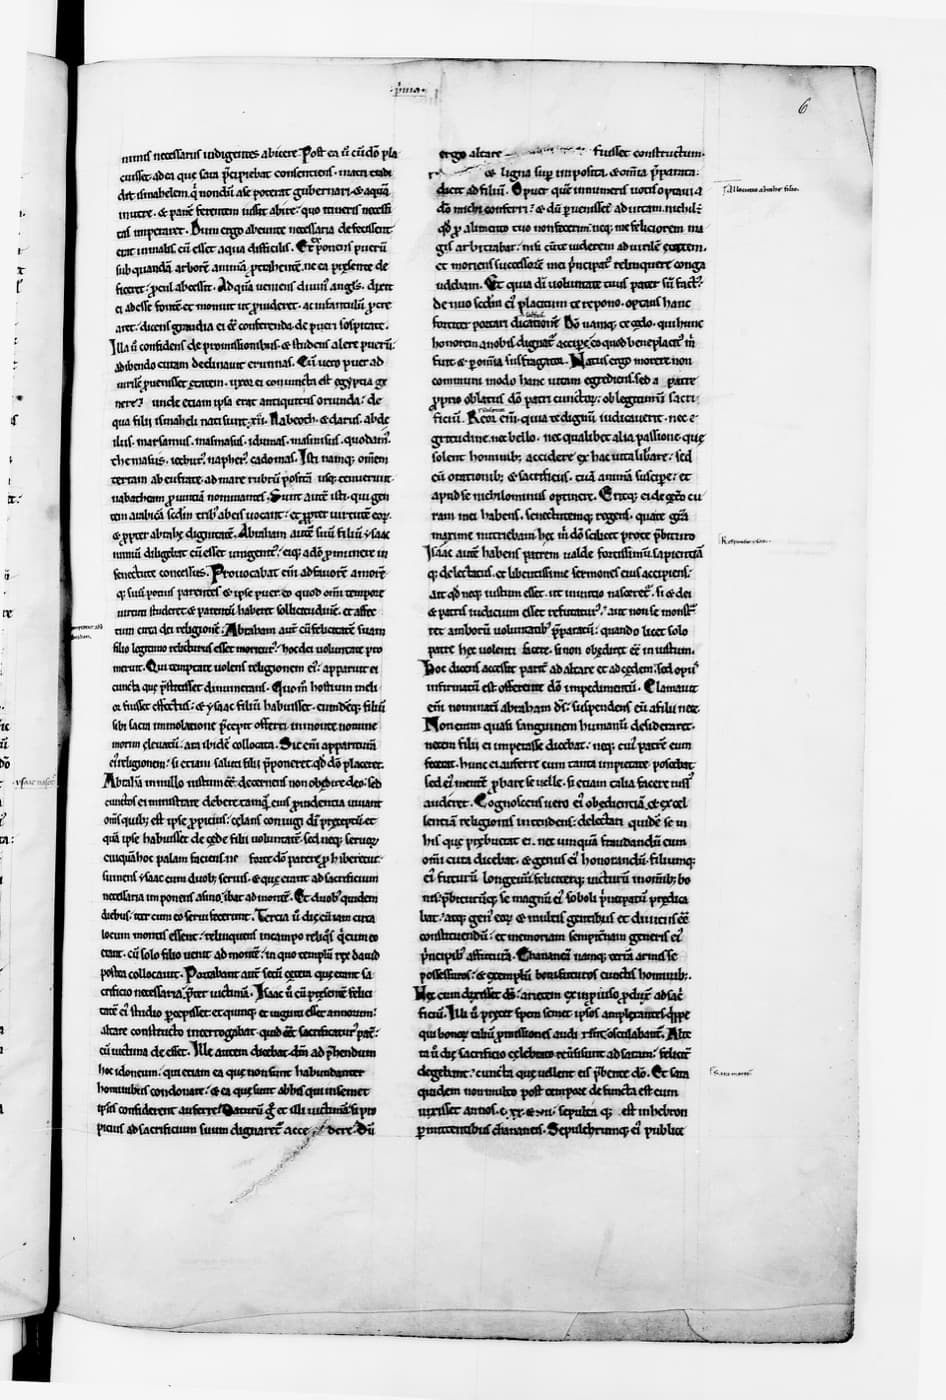 ·p̄ma·
6
nimis necessariis indigentes abicere. Post ea ū cū dō pla
cuisset. ad ea que sara p̄cipiebat consentiens.
dit ismahelem. q̄ nondū adse poterat gubernari. & aquā
in utre. & panē ferentem iussit abire. quo itineris necessi
tas imperaret. Dum ergo abeunte necessaria defecissent
erat in malis. cū esset aqua difficilis. Et ponens puerū
sub quandā arborē animā ne ea presente de
ficeret. p̄cul abcessit. Ad quā ueniens diuin' angl's. dixit
ei adesse fontē. et monuit ut p̄uideret. ac infantulū
dicens gaudia ei eē conferenda. de pueri sospitate.
Illa ū confidens de promissionibus. & studens alere puerū.
adibendo cutam declinauit erumnas. Cū uero puer ad
uirilē puenisset etatem. uxor ei coniuncta est egyptia ge
nere. unde etiam ipsa erat antiquitus oriunda. de
qua filii ismaheli nati sunt. xii. Nabeoth. & darus. abde
ilus. marsamus. masmasus. idumas. masmisus.
themasus. naphes'. cadomas. Isti namq; omēm
terram ab eufrate. ad mare rubrū positā
nabatheam puintiā nominantes. Sunt autē isti. qui gen
tem arabicā scd'm trib' abeis uocant. et ppter uirtutē eor.
& ppter abrahe dignitatē. Abraham autē suū filiū ysaac
nimiū diligebat cū esset unigenit'. eiq; adō p munere in
senectute concessus. Prouocabat eni adfauorē amorē
q; suū potius parentes & ipse puer eo quod omi tempore
uirtuti studeret & parentū haberet sollicitudinē. et affec
tum circa dei religionē. Abraham aut cū felicitatē suam
filio legitimo relicturus esset moreret'. hoc dei uoluntate pro
meruit. Qui temptare uolens religionem ei'. apparuit ei
cuncta que p̄stitisset dinumerans. Quom̄ hostium meli
or fuisset effectus. & ysaac filiū habuisset. eundēq; filiū
sibi sacra immolatione p̄cepit offerri. in monte nomine
morim eleuatū. ara ibidē collocata. Sic eni appariturā
ei' religionem. si etiam saluti filii p̄poneret qd' dō placeret.
Abrahā in nullo iustum eē decernens non obedire deo. sed
cunctos ei ministrare debere tamq; eius puidentia uiuant
om̄s quib; est ipse ppicius. celans coniugi dī preceptū. et
quā ipse habuisset de cede filii uoluntatē. sed neq; seruor
cuiquā hoc palam faciens. ne forte dō parere phiberetur.
sumens ysaac cum duob; seruis. & que erant ad sacrificium
necessaria imponens asino. ibat ad montē. Et duob' quidem
diebus iter cum eo serui fecerunt. Tercia ū die cū iam circa
locum montis essent. relinquens incampo reliq's q' cum eo
erant. cū solo filio uenit ad montē. in quo templū rex dauid
postea collocauit. Portabant aut secū cetera que erant sa
crificio necessaria. p̄ter uictimā. Isaac ū cū presenti felici
tate ei' studio percepisset. et quinq; et uiginti esset annorum.
altare constructo interrogabat quid eēt sacrificatur' pat'.
cū uictima de esset. Ille autem dicebat dm̄ ad p̄bendum
hoc idoneum. qui etiam ea que non sunt habundanter
hominibus condonaret. & ea que sunt abhis qui in semet
ipsis confiderent auferre. Daturū g' et illi uictimā. si pro
picius ad sacrificium suum dignaret' accedere. Dū
ergo altare fuisset constructum.
& ligna sup imposita. & omīa p̄parata.
dicit ad filiū. O puer quē innumeris uotis optaui a
dō michi conferri. & dū puenisset ad uitam. nichil ē
qd' p alimento tuo non fecerim. neq; me feliciorem ma
gis arbitrabar. nisi cū te uiderem ad uirilē etatem.
et moriens successorē mei p̄ncipat' relinquere
Et quia dī uoluntate tuus pater sū fact'.
de nuo scd'm ei' placitum te repono. optans hanc
fortiter portari dicationē. Dō namq; te cedo. qui hunc
honorem a nobis dignat' accipe. eo quod beneplacit' m̄
fuit & p omīa suffragator. Natus ergo morere non
communi modo hanc uitam egrediens. sed a patre
pprio oblatus dō patri cunctor. ob legitimū sacri
ficiū. Reor eni. quia te dignū iudicauerit. nec e
gritudine. nec bello. nec qualibet alia passione. que
solent hominib; accidere ex hac uita liberare. sed
cū orationib; & sacrificiis. tuā animā suscipere. et
apud se nichilominus optinere. Eritq; ei de cetero cu
ram mei habens. senectutemq; regens. quare grā
maxime nutriebam. hec m̄ dō scilicet prote p̄bituro
Isaac autē habens patrem ualde fortissimū sapientiā
q; delectatus. et libentissime sermones eius accipiens.
ait qd' neq; iustum esset. ut in initio nasceret'. si & dei
& patris iudicium esset refutatur'. aut non se monst'
ret amborū uoluntatib' p̄paratū. quando licet solo
patre hec uolenti facere. si non obediret eē iniustum.
Hoc dicens accessit paritē ad altare et ad cedem. sed op'
infirmatū est offerente dō impedimentū. Clamauit
eni nominatī abraham d's. suspendens eū a filii nece.
Non enim quasi sanguinem humanū desideraret.
necem filii ei imperasse dicebat. neq; cui' patrē eum
fecerat. hunc ei auferre cum tanta impietate poscebat.
sed ei' mentē pbare se uelle. si etiam talia facere iuss'
auderet. Cognoscens uero ei' obedientiā. & excel
lentiā religionis intendens. delectari quidē se in
his que prebuerat ei. nec umquā fraudandū eum
omī cura dicebat. & genus ei' honorandū. filiumq;
ei' futurū longeuū. feliciterq; uicturū in omīb; bo
nis. p̄biturūq; se magnū ei' soboli p̄ncipatū predica
bat. atq; gen' eor & multis gentibus et diuitiis eē
constituendū. et memoriam sempiternam generis ei'
p̄ncipib' affuturā. Chananeā namq; terrā armis se
possessuros. & exemplū benefacturos cunctis hominib;.
Hec cum dixisset d's. arietem ex inpuiso pduxit ad sac'
ficiū. Illi ū preter spem semet ipsos amplexantes. q̄ppe
qui bonor talū pmissiones audi'
ū die sacrificio celebrato. reūsi sunt ad saram. felicit
degebant. cuncta que uellent eis p̄bente dō. Et sara
quidem non multo post tempore defuncta est cum
uixisset annos. c. xx. & vii. sepulta q; est in hebron
pmittentibus chananeis. Sepulchrumq; ei' publice
Allocutio abrahe filio.
Responsio isaac.
Sara moritur
ysaac nascit'